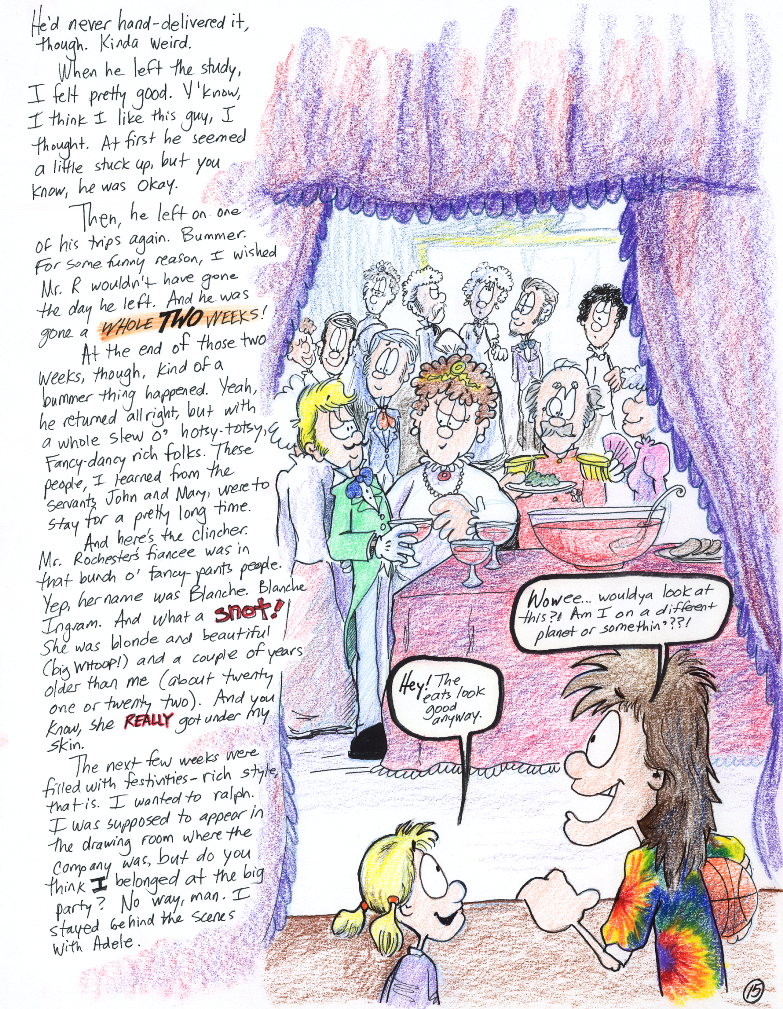 He'd never hand-delivered it,
though. Kinda weird.
When he left the study,
I felt pretty good. Y'know,
I think I like this guy, I
thought. At first he seemed
a little stuck up, but you
know, he was okay.
Then, he left on one
of his trips again. Bummer.
For some funny reason, I wished
Mr. R wouldn't have gone
the day he left. And he was
gone a WHOLE TWO WEEKS!
At the end of those two
weeks, though, kind of a
bummer thing happened. Yeah,
he returned allright, but with
a whole slew o' hotsy-totsy,
Fancy-dancy rich folks. These
people, I learned from the
servants John and Mary, were to
stay for a pretty long time.
And here's the clincher.
Mr. Rochester's fiancee was in
that bunch o' fancy-pants people.
Yep, her name was Blanche. Blanche
Ingram. And what a snot!
She was blonde and beautiful
(big whoop!) and a couple of years
older than me (about twenty
one or twenty two). And you
know, she REALLY got under my
skin.
The next few weeks were
filled with festivities-rich style,
that is. I wanted to ralph.
I was supposed to appear in
the drawing room where the
company was, but do you
think I belonged at the big
party? No way, man. I
stayed behind the scenes
with Adele.
Wowee... wouldya look at
this?! Am I on a different
planet or somethin'??!
Hey! The
eats look
good
anyway.
15